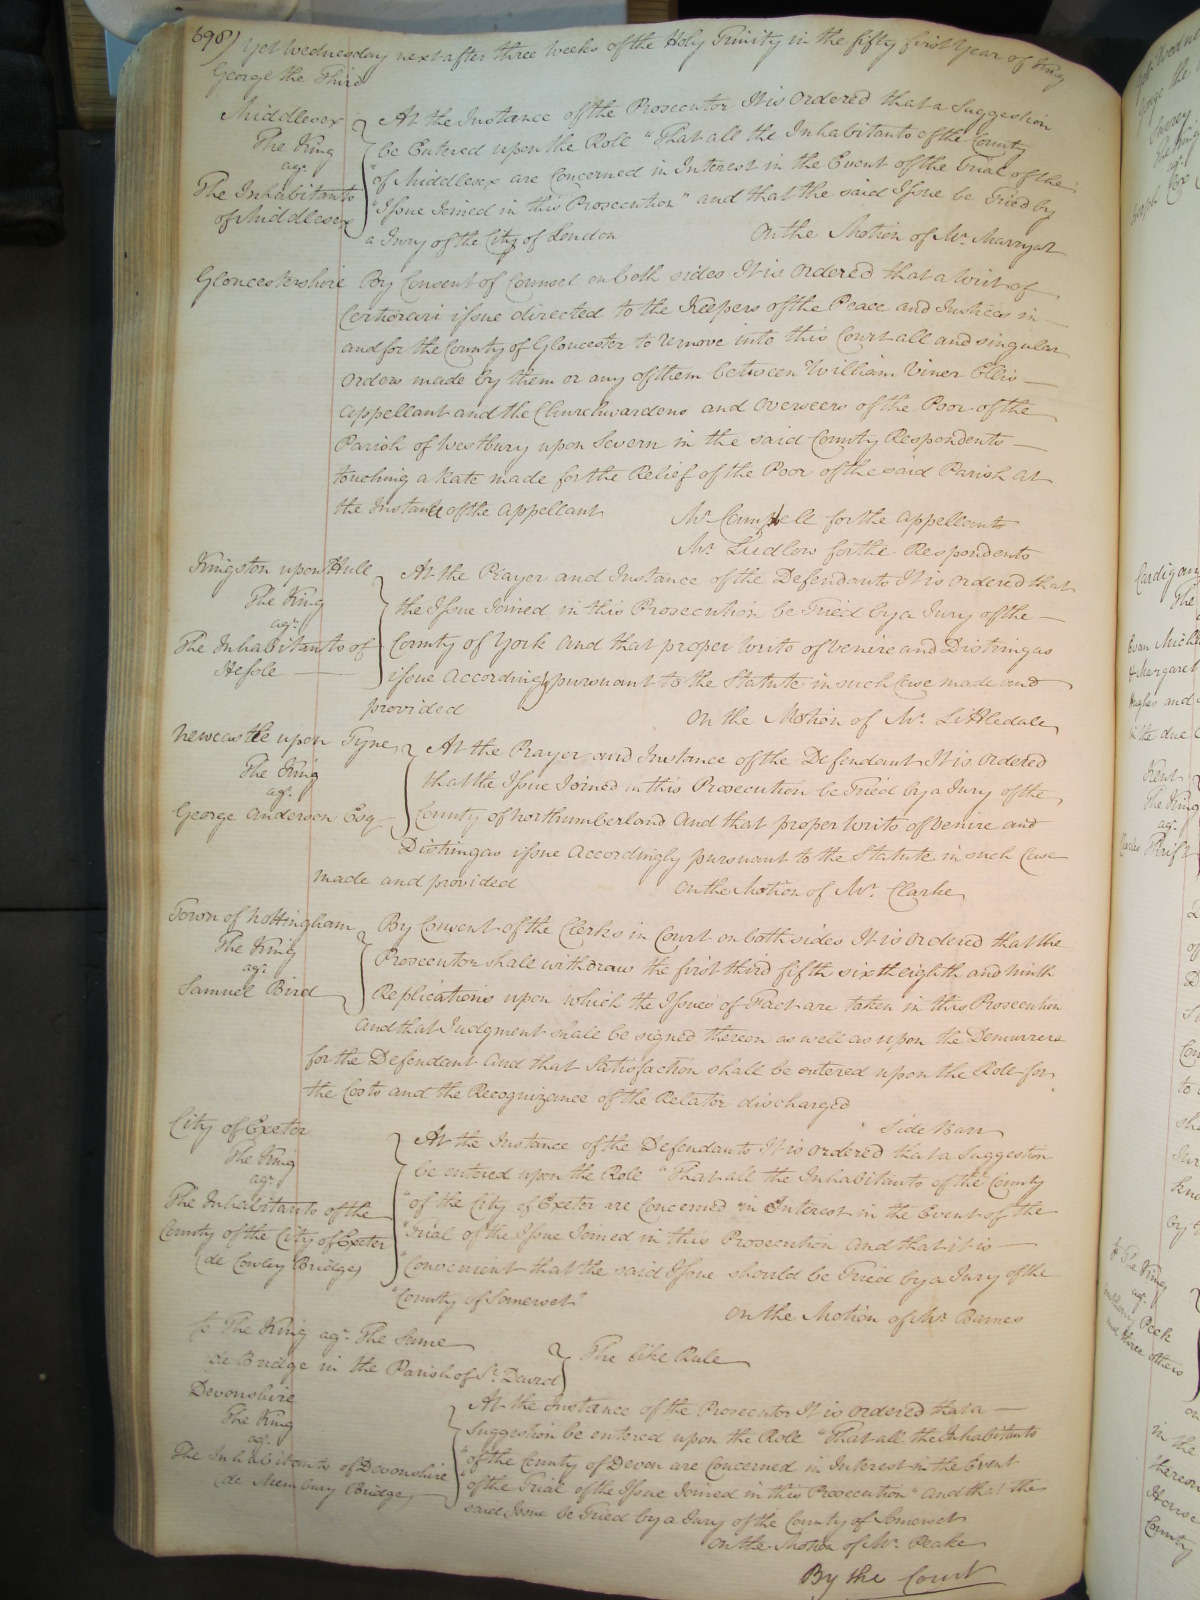 698) Yet Wednesday next after three weeks of the Holy Trinity in the fifty first Year of King
George the Third
Middlesex
The King
agt.
The Inhabitants
of Middlesex
At the Instance of the Prosecutor It is Ordered that a Suggestion
be Entered upon the Role "That all the Inhabitants of the County
"of Middlesex are Concerned in Interest in the Event of the Trial of the
"Issue Joined in this Prosecution" and that the said Issue be Tried by
a Jury of the City of London
On the Motion of Mr. Marryat
Gloucestershire By Consent of Counsel on both sides It is Ordered that a Writ of
Certiorari issue directed to the Keepers of the Peace and Justices in
and for the County of Gloucester to remove into this Court all and singular
Orders made by them or any of them between William Viner Ellis
Appellant and the Churchwardens and Overseers of the Poor of the
Parish of Westbury upon Severn in the said County Respondents
touching a Rate made for the Relief of the Poor of the said Parish At
the Instance of the Appellant
Mr. Campbell for the Appellants
Mr. Ludlow for the Respondents
Kingston upon Hull
The King
agt.
The Inhabitants of
Hessle
At the Prayer and Instance of the Defendants It is Ordered that
the Issue Joined in this Prosecution be Tried by a Jury of the
County of York And that proper Writs of Venire and Distringas
issue Accordingly pursuant to the Statute in such Case made and
provided
On the Motion of Mr. Littledale
Newcastle upon Tyne
The King
agt.
George Anderson Esq
At the Prayer and Instance of the Defendant It is Ordered
that the Issue Joined in this Prosecution be Tried by a Jury of the
County of Northumberland And that proper Writs of Venire and
Distringas issue Accordingly pursuant to the Statute in such Case
made and provided
On the Motion of Mr. Clarke
Town of Nottingham
The King
agt.
Samuel Bird
By Consent of the Clerks in Court on both sides It is Ordered that the
Prosecutor shall withdraw the first third fifth sixth eighth and ninth
Replications upon which the Issues of Fact are taken in this Prosecution
and that Judgment shall be signed thereon as well as upon the Demurrers
for the Defendant And that Satisfaction shall be entered upon the Role for
the Costs and the Recognizance of the Relator discharged
Side Barr
City of Exeter
The King
agt.
The Inhabitants of the
County of the City of Exeter
(de Cowley Bridge)
At the Instance of the Defendants It is Ordered that a Suggestion
be entered upon the Role "That all the Inhabitants of the County
"of the City of Exeter are Concerned in Interest in the Event of the
"Trial of the Issue Joined in this Prosecution And that it is
"Convenient that the said Issue should be Tried by a Jury of the
"County of Somerset"
On the Motion of Mr. Barnes
to The King agt. The Same
de Bridge in the Parish of St. David
The like Rule
Devonshire
The King
agt.
The Inhabitants of Devonshire
(de Membury Bridge)
At the Instance of the Prosecutor It is Ordered that a
Suggestion be entered upon the Role "That all the Inhabitants
"of the County of Devon are Concerned in Interest in the Event
"of the Trial of the Issue Joined in this Prosecution" And that the
said Issue be Tried by a Jury of the County of Somerset
On the Motion of Mr. Peake
By the Court
Cardigan
The
Evan
& Margaret
Hughes and
in the due
Kent
The King
agt.
Charles
to The King
agt.
Peek
and three others
in the
thereon
County